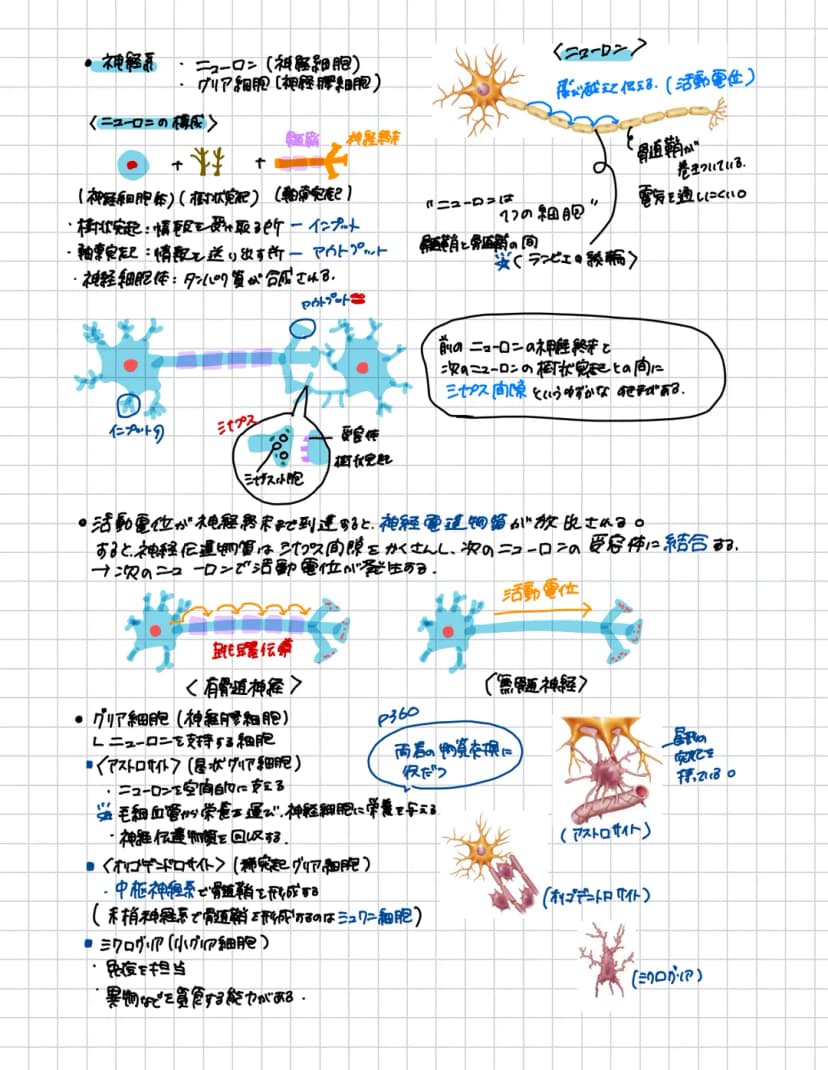 ・神経系 ・ニューロン(神経細胞)
・グリア細胞(神経膠細胞)
<ニューロン>
飛び越えて伝える.(活動電位)
<ニューロンの構成>
髄鞘 神経終末
+ +
(神経細胞体)(樹状突起)(軸索突起)
髄鞘が
巻きついている.
電気を通しにくい。
"ニューロンは
1つの細胞"
髄鞘と髄鞘の間
※<ランビエの絞輪>
・樹状突起:情報を受け取る所 − インプット
・軸索突起:情報を送り出す所 − アウトプット
・神経細胞体:タンパク質が合成される.
アウトプット
前のニューロンの神経終末と
次のニューロンの樹状突起との間に
シナプス間隙というわずかな
がある.
インプット
シナプス
受容体
樹状突起
シナプス小胞
・活動電位が神経終末まで到達すると、神経電達物質が放出される。
すると、神経伝達物質はシナプス間隙をかくさんし、次のニューロンの受容体に結合する.
→次のニューロンで活動電位が発生する.
活動電位
跳躍伝導
<有髄神経>
(無髄神経>
・グリア細胞(神経膠細胞)
∟ニューロンを支持する細胞
P360
両者の物質交換に
役だつ
▪<アストロサイト>(星状グリア細胞)
・ニューロンを空間的に支える
※毛細血管から栄養を運び、神経細胞に栄養を与える
・神経伝達物質を回収する.
多数の
突起を
持っている。
(アストロサイト)
▪<オリゴデンドロサイト>(稀突起グリア細胞)
・中枢神経系で髄鞘を形成する
(末梢神経系で髄鞘を形成するのはシュワン細胞)
(オリゴデントロサイト)
▪ミクログリア(小グリア細胞)
・免疫を担当
・異物などを貪食する能力がある.
(ミクログリア)